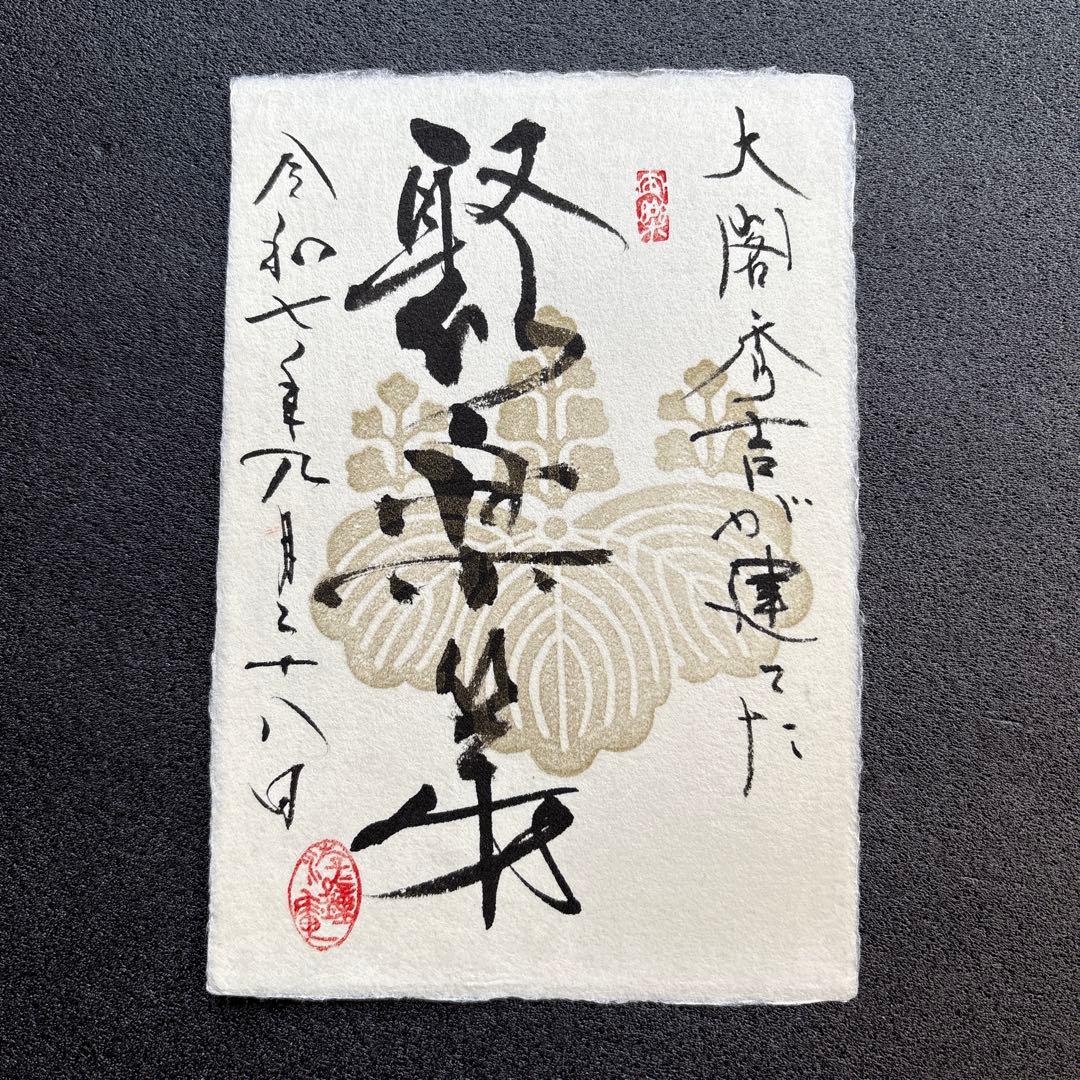 大閣秀吉が建てた
聚楽第
令和七年九月二十八日